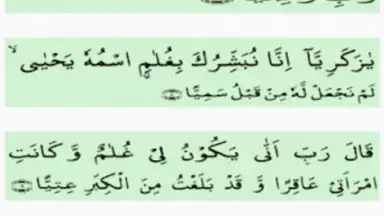 يٰزَكَرِيَّآ اِنَّا نُبَشِّرُكَ بِغُلٰمِۨ اسْمُهٗ يَحْيٰى ۙ
لَمْ نَجْعَلْ لَّهٗ مِنْ قَبْلُ سَمِيًّا
قَالَ رَبِّ اَنّٰى يَكُوْنُ لِىْ غُلٰمٌ وَّ كَانَتِ
امْرَاَتِىْ عَاقِرًا وَّ قَدْ بَلَغْتُ مِنَ الْكِبَرِ عِتِيًّا